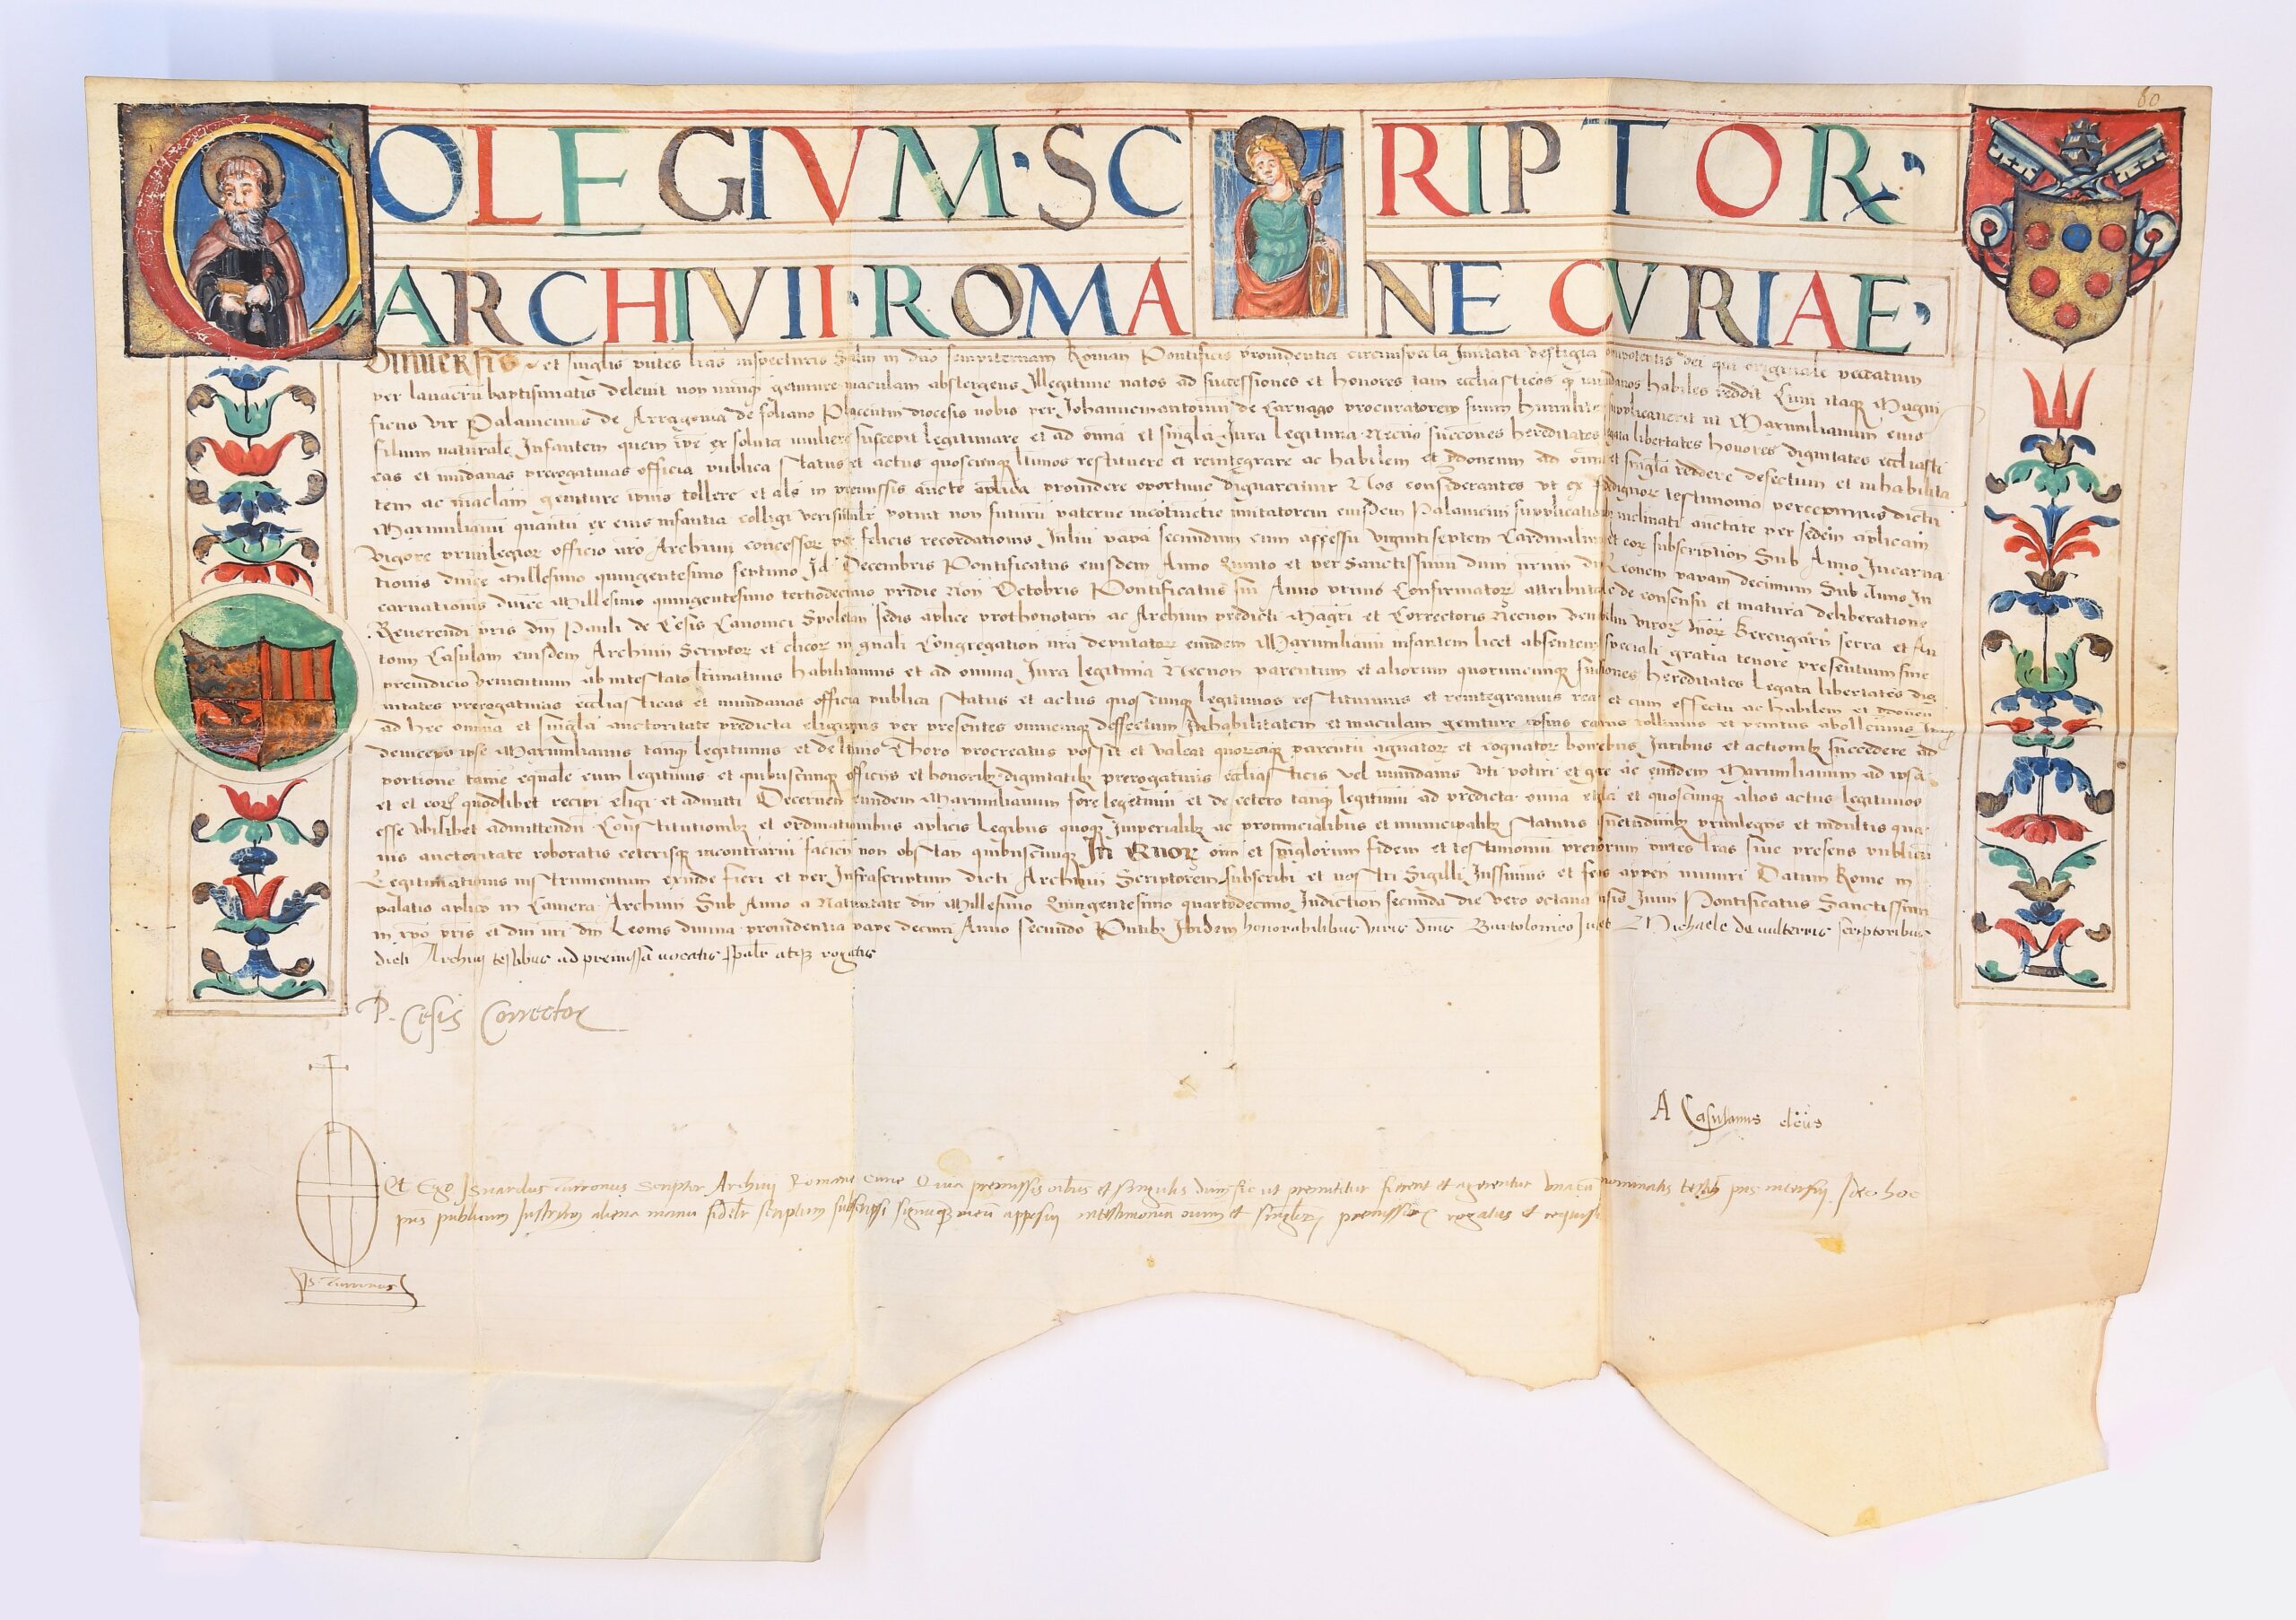 60
COLEGIVM · SCRIPTOR ·
ARCHIVII · ROMANE CVRIAE ·
Vniuersis et singlis pntes lras inspecturis Saltm in dno sempiternam Roman Pontificis prouidentia circumspecta Imitata vestigia omnipotentis dei qui originale peccatum
per lauacrū baptismatis deleuit non nunq geniture maculam abstergens Illegitime natos ad successiones et honores tam eccliasticos q mundanos habiles reddit Cum itaq Magni
ficus vir Palauicinus de Arragonia de soliano Placentin diocesis nobis per Johannemantoniū de Carnago procuratorem suum humiliter supplicauerit vt Maximilianum eius
filium naturale Infantem quem ipe ex soluta muliere suscepit legitimare et ad omia et singla Jura legitima Necno succones hereditates legata libertates honores dignitates eccliasti
cas et mundanas prerogatiuas officia publica status et actus quoscunq ltimos restituere et reintegrare ac habilem et Idoneum ad omia et singla reddere defectum et inhabilita
tem ac maclam geniture ipius tollere et als in premissis aucte aplica prouidere oportune dignaremur Nos considerantes vt ex fidedignor testimonio percepimus dictū
Maximilianū quantū ex eius infantia colligi verisimilr potuit non futurū paterne incotinetie imitatorem eiusdem Palauicini supplicationibz inclinati auctate per sedem aplicam
vigore priuilegior officio nro Archiuii concessor per felicis recordationis Julium papā secundum cum assessu vigintiseptem Cardinalium et eor subscription Sub Anno Incarna
tionis dnice Millesimo quingentesimo septimo Id Decembris Pontificatus eiusdem Anno Quinto et per Sanctissimū dnm nrum dn Leonem papam decimum Sub Anno In
carnationis dnice Millesimo quingentesimo tertiodecimo pridie Non Octobris Pontificatus sui Anno primo Confirmator attributa de consensu et matura deliberatione
Reuerendi pris dni Pauli de Cesis Canonici Spoletan sedis aplice prothonotarii ac Archiuii predicti Magri et Correctoris Necnon venbilium viror dnor Berengarii serra et An
tonii Casulam eiusdem Archiuii Scriptor et clicor in gnali Congregation nra deputator eundem Maximilianū infantem licet absentem speciali gratia tenore presentium sine
preiudicio venientium ab intestato ltimamus habilitamus et ad omnia Jura legitima Necnon parentum et aliorum quorumcunque succones hereditates legata libertates dig
nitates prerogatiuas eccliasticas et mundanas officia publica status et actus quoscunq legitimos restituimus et reintegramus rea et cum effectu ac habilem et Idoneū
ad hec omnia et singla auctoritate predicta eligimus per presentes omnemq deffectum Inhabilitatem et maculam geniture ipsius eamus tollimus et penitus abollemus Itaq
deinceps ipse Maximilianus tanq legitimus et de ltimo Thoro procreatus possit et valeat quorcuq parentū agnator et cognator bonis Iuribus et actionibz succedere ad
portione tame equale cum legitimis et quibuscunque officiis et honoribz dignitatibz prerogatiuis eccliasticis vel mundanis vti potiri et gre ac eundem Maximilianum ad ipsa
et et eor quodlibet recipi eligi et admitti Decernen eundem Maximilianum fore legitimū et de cetero tanq legitimū ad predicta omia et et quoscunque alios actus legitimos
esse vbilibet admittendū Constitutionibz et ordinationibus aplicis Legibus quoq Imperialibz ac prouincialibus et municipalibz statutis cosuetudinibz priuilegiis et indultis qua
uis auctoritate roboratis ceterisq incontrariū facien non obstan quibuscunq In Quor oim et singlorum fidem et testimoniū premorum pntes lras siue presens publicū
Legitimationis instrumentum exinde fieri et per Infrascriptum dicti Archiuii Scriptorem subscribi et nostri Sigilli Iussimus et fecimus appen muniri Datum Rome in
palatio aplico in Camera Archiuii Sub Anno a Natiuitate dni Millesimo Quingentesimo quartodecimo Indiction secunda die vero octaua mensis Junii Pontificatus Sanctissimi
in xpo pris et dni nri dni Leonis diuina prouidentia pape decimi Anno secundo Pntibz Ibidem honorabilibus viris dnis Bartolomeo et Michaele de vulterris scriptoribus
dicti Archiuii testibus ad premissa vocatis spalr atq rogatis
P. Cesis Corrector
A Casulanus
Et Ego Isuardus Turronus Scriptor Archiuii Romane Curie Quia premissis oibus et singulis dum sic ut premittitur fierent et agerentur vnacū nominatis testibz pns interfui Ideo hoc
pns publicum Instrm aliena manu fidelr scriptum subscripsi signuq meū apposui intestimonium omnium et singlor premissor rogatus et requisi